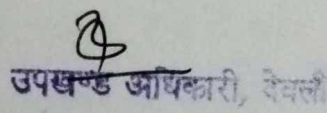 उपखण्ड अधिकारी, देवली